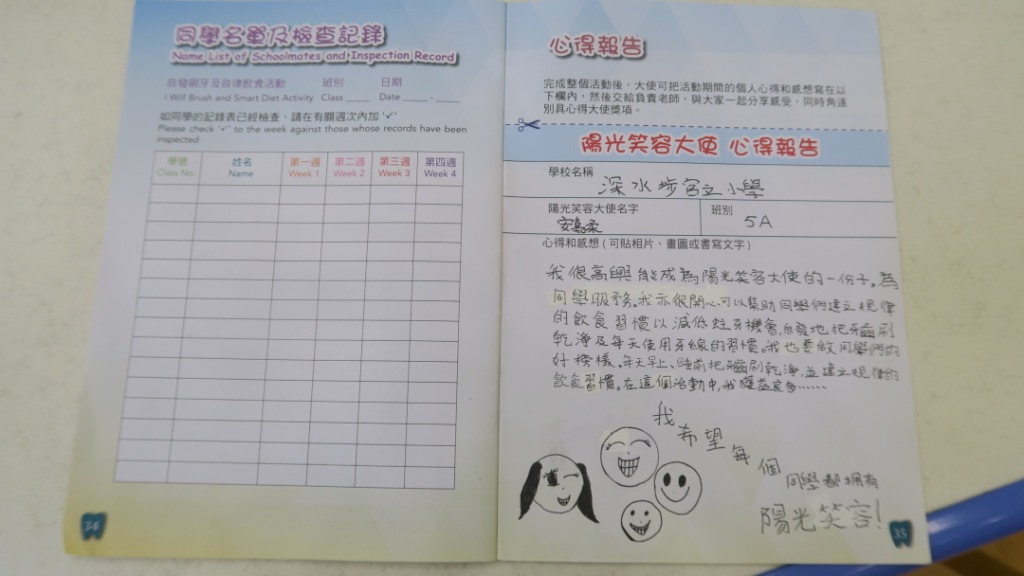 同學名單及檢查記錄
Name List of Schoolmates and Inspection Record
自發刷牙及自律飲食活動 班別 日期
I Will Brush and Smart Diet Activity Class ____ Date ____ - ____
如同學的記錄表已經檢查，請在有關週次內加 '✓'
Please check '✓' to the week against those whose records have been
inspected
學號 姓名 第一週 第二週 第三週 第四週
Class No. Name Week 1 Week 2 Week 3 Week 4
34
心得報告
完成整個活動後，大使可把活動期間的個人心得和感想寫在以
下欄內，然後交給負責老師，與大家一起分享感受，同時角逐
別具心得大使獎項。
陽光笑容大使 心得報告
學校名稱
深水埗官立小學
陽光笑容大使名字 班別
安嘉柔 5A
心得和感想 ( 可貼相片、畫圖或書寫文字 )
我很高興能成為陽光笑容大使的一份子，為
同學服務。我亦很開心可以幫助同學們建立規律
的飲食習慣以減低蛀牙機會，自發地把牙齒刷
乾淨及每天使用牙線的習慣。我也要做同學們的
好榜樣、每天早上、睡前把牙齒刷乾淨，並建立規律的
飲食習慣。在這個活動中，我獲益良多……
我希望每個
同學都擁有
陽光笑容!
35